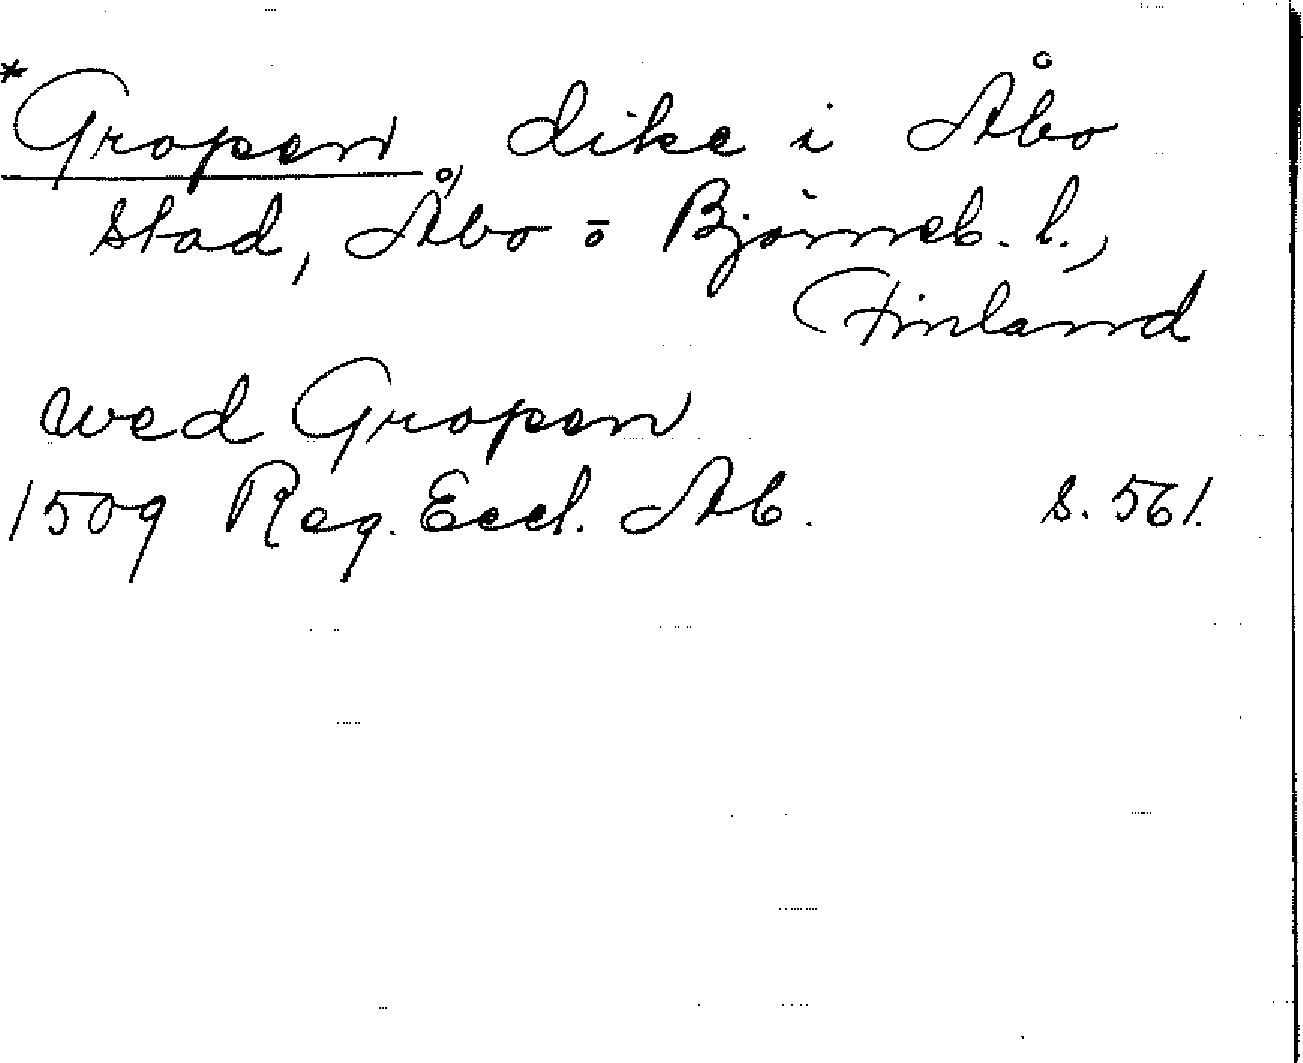 *Gropen, dike i Åbo
stad, Åbo o Björneb. l.,
Finland
wed Gropen
1509 Reg. Eccl. Ab. s. 561.